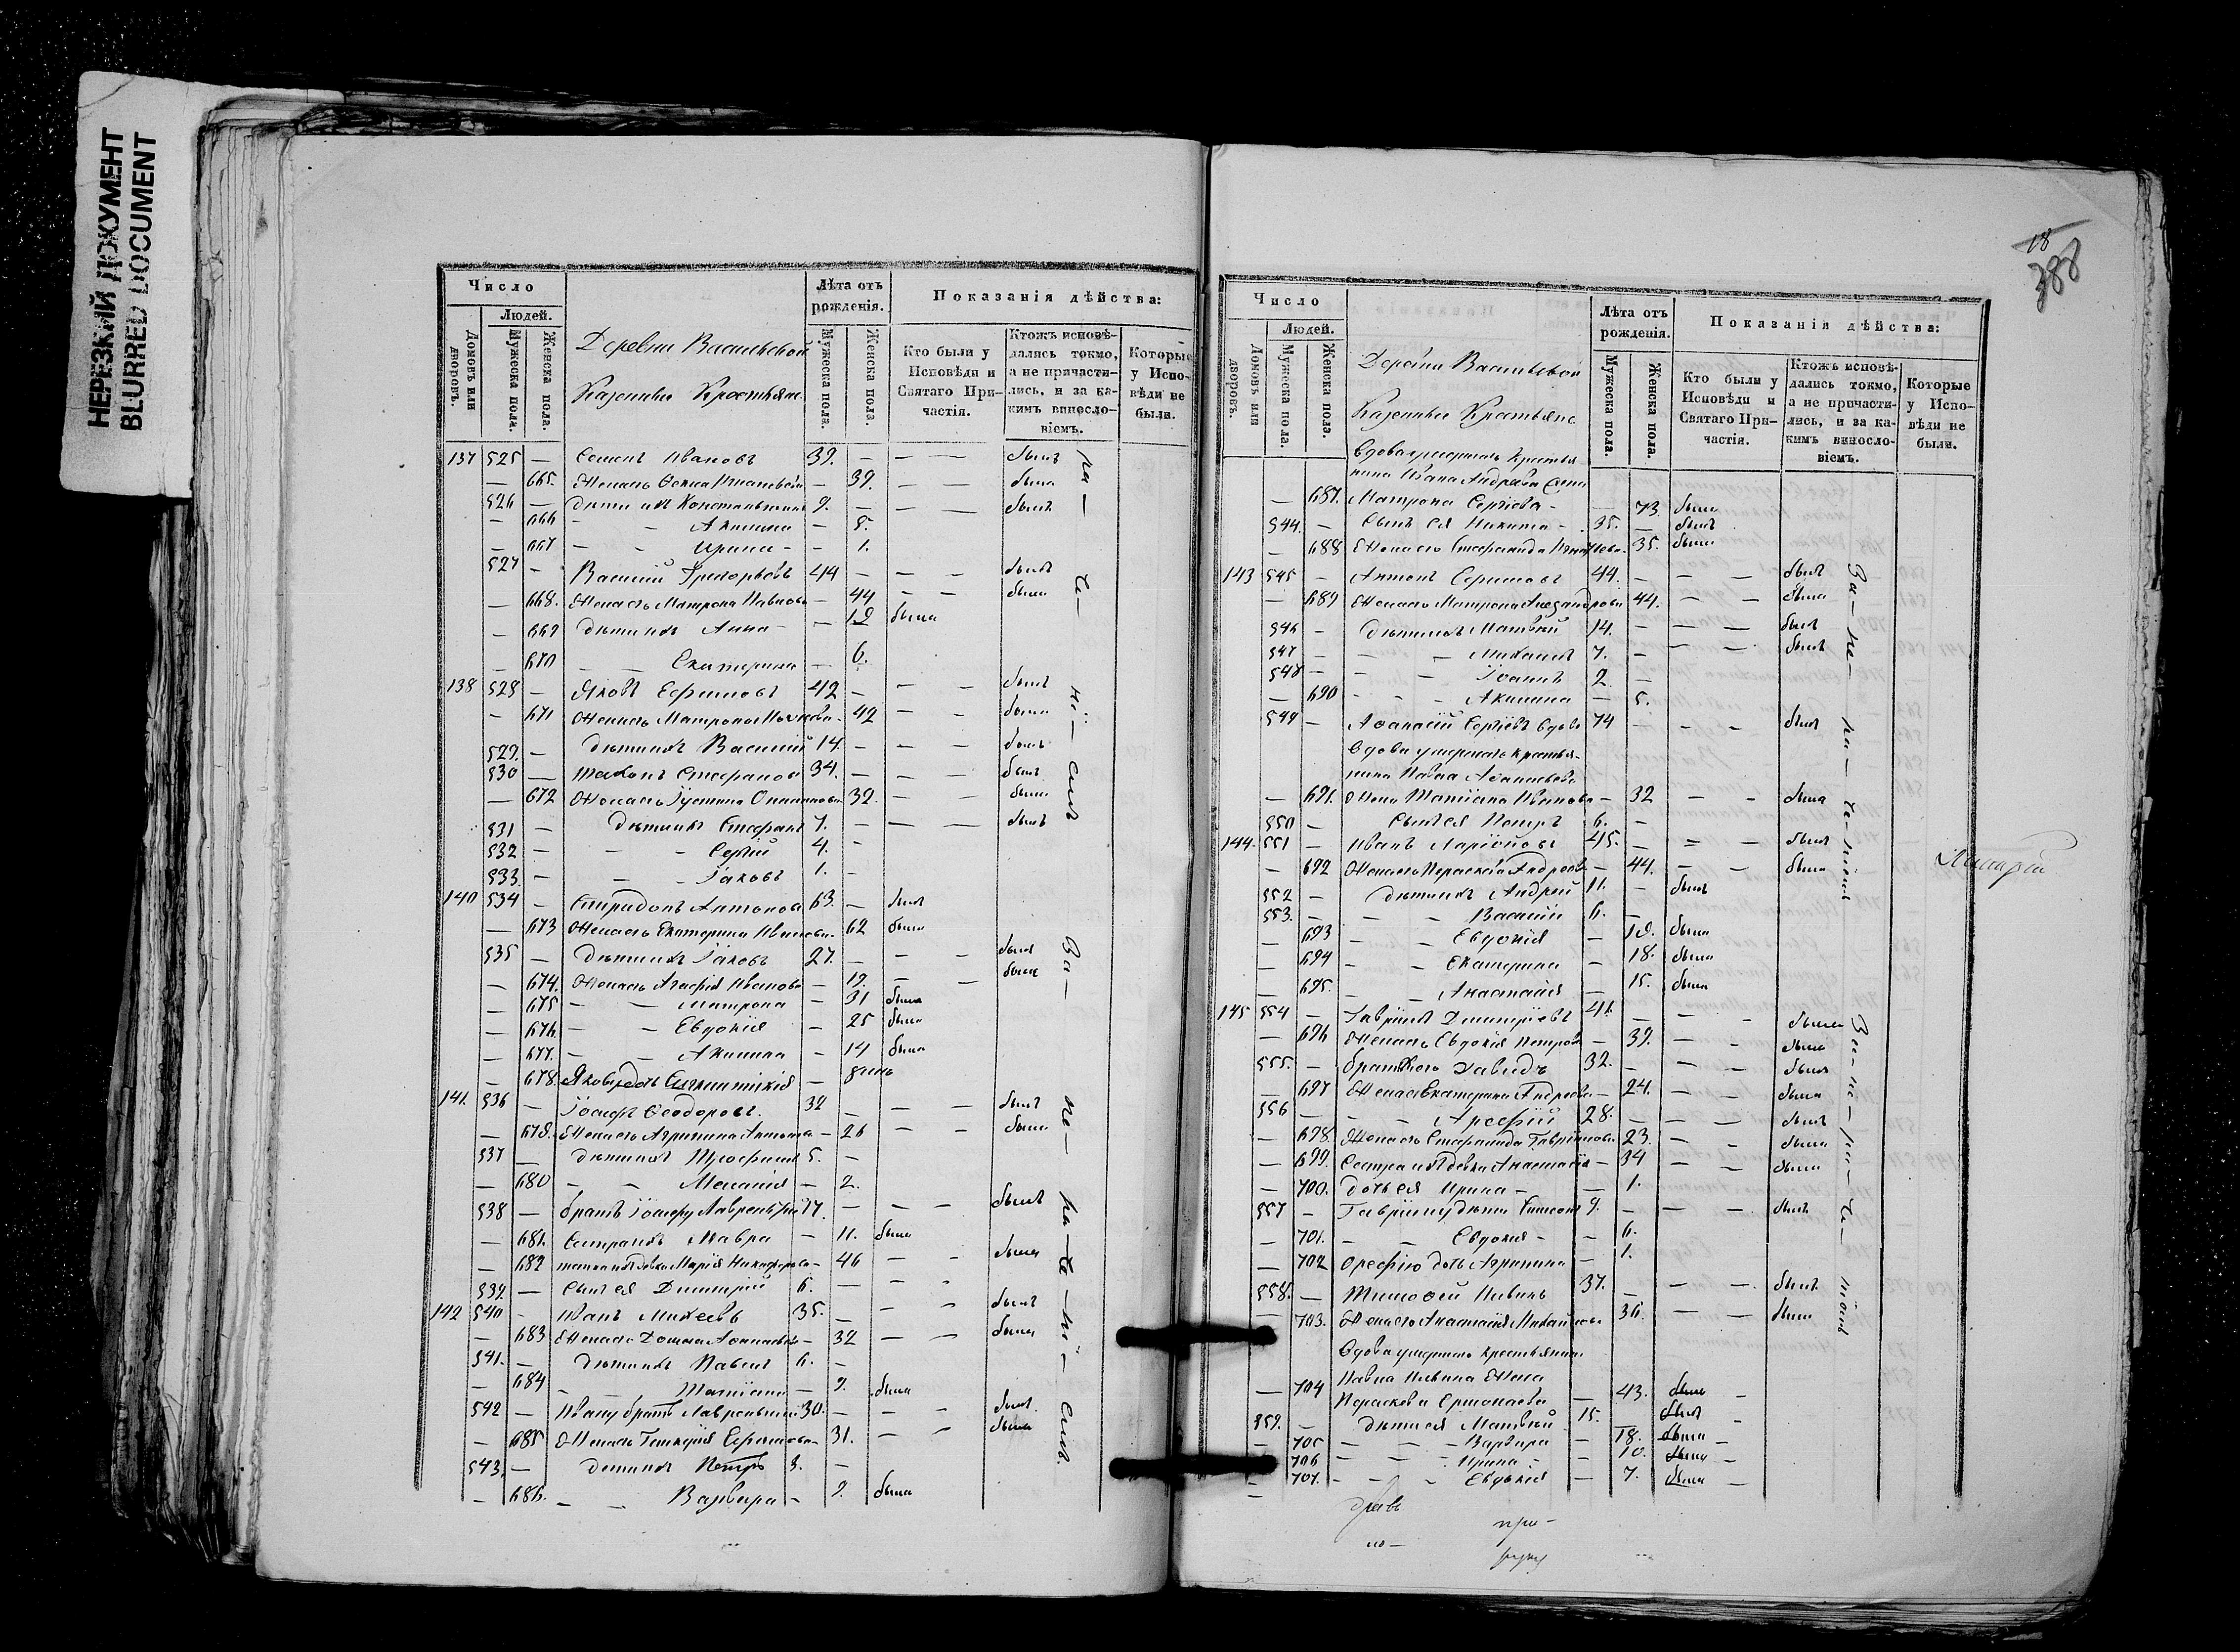 НЕРЕЗКИЙ ДОКУМЕНТ
BLURRED DOCUMENT
Число
Людей.
Домовъ или дворовъ.
Мужеска пола.
Женска пола.
Деревни Васильевской
Казенные Крестьяне
Лѣта отъ рожденія.
Мужеска пола.
Женска пола.
Показанія дѣйства:
Кто были у Исповѣди и Святаго При-частія.
Ктожъ исповѣ-дались токмо, а не причасти-лись, и за ка-кимъ винosло-віемъ.
Которые у Испо-вѣди не были.
137 525 — Семенъ Ивановъ 39. — — — былъ
— 665. Жена его — 39. — — была
526 — Дѣти ихъ Константинъ 9. — — — былъ
— 666 — — Акилина — 5.
— 667 — — Ирина — — 1.
527 — Василій Григорьевъ 44 — — — былъ
— 668. Жена его Матрона Павлова — 44 — — была
— 669 Дѣти ихъ Анна — — 12 была
— 670 — — Екатерина — 6.
138 528 — Яковъ Ефимовъ 42 — — — былъ
— 671 Жена его Матрона — 42 — — была
529. — Дѣти ихъ Василій 14. — — — былъ
530 — Стефановъ 34. — — — былъ
— 672 Жена его Іустина 32. — — была
531 — Дѣти ихъ Стефанъ 7. — — — былъ
532 — — — Сергій 4. —
533. — — — Іаковъ 1. —
140 534 — Спиридонъ Антоновъ 63. — былъ
— 673 Жена его Екатерина Иванова — 62 была
535 — Дѣти ихъ Іаковъ 27. — — — былъ
— 674. Жена его Агафія Иванова — 19. — — была
— 675 — — Матрона — 31 была
— 676. — — Евдокія — 25 была
— 677. — — Акилина — 14 была
— 678. Якову дочь —
141. 536 — Іосифъ Ѳеодоровъ. 32 — — — былъ
— 679. Жена его Агрипина — 26 — — была
537 — Дѣти ихъ Трофимъ 5. —
— 680 — — Меланія — 2.
538 — братъ Іосифу Лаврентій 17. — — — былъ
— 681. Сестра ихъ Мавра — 11. была
— 682 Марія Никифорова — 46 — — была
539. — Сынъ ея Димитрій 6. — — —
142 540 — Иванъ Михеевъ 35. — — — былъ
— 683 Жена его Домна Аѳанасьева — 32 — — была
541. — Дѣти ихъ Павелъ 6. —
— 684 — — Татіана — 9. была
542 — Ивану братъ Лаврентій 30. — — — былъ.
— 685 Жена его Гликерія Ефимова — 31. — — была
543. — Дѣти ихъ Петръ 3. —
— 686. — — Варвара — 9. была
За-не-ра-че-ні-емъ.
18
388
Число
Людей.
Домовъ или дворовъ.
Мужеска пола.
Женска пола.
Деревни Васильевой
Казенные Крестьяне
Лѣта отъ рожденія.
Мужеска пола.
Женска пола.
Показанія дѣйства:
Кто были у Исповѣди и Святаго При-частія.
Ктожъ исповѣ-дались токмо, а не причасти-лись, и за ка-кимъ винosло-віемъ.
Которые у Испо-вѣди не были.
Вдова умершаго Крестья-
нина Ивана Андреева
— 687. Матрона Сергіева — — 73. была
544. — Сынъ ея Никита — 35. — былъ
— 688 Жена его Стефанида 35. была
143 545 — Антонъ 44. — — — былъ
— 689 Жена его Матрона Александрова 44. — — была
546 — Дѣти ихъ Матвѣй 14. — — — былъ
547 — — — Михаилъ 7. — — — былъ
548 — — — Іоаннъ 2. —
— 690 — — Акилина — 5.
549 — Аѳанасій Сергѣевъ вдовъ 74 — — — былъ
Вдова умершаго крестья-
нина Павла Аѳанасьева
— 691. Жена Татіана Иванова — 32 — — была
550 — Сынъ ея Петръ 6. —
144. 551 — Иванъ Ларіоновъ 45. — — — былъ
— 692 Жена его Параскева Андреева — 44. — — была
552 — Дѣти ихъ Андрей 11. — былъ
553. — — — Василій 6. —
— 693 — — Евдокія — 19. была
— 694 — — Екатерина — 18. была
— 695. — — Анастасія — 15. была
145 554 — Гавріилъ Димитріевъ 41. — — — былъ
— 696 Жена его Евдокія Петрова — 39. — — была
555. — братъ его Давидъ 32. — — — былъ
— 697 Жена его Екатерина Андреева — 24. — — была
556 — — Арефій 28. — — — былъ
— 698. Жена его Стефанида Гавріилова 23. — — была
— 699. Сестра ихъ девка Анастасія — 34 — — была
— 700. дочь ея Ирина — — 1.
557 — Гавріилу дѣти 9. — — — былъ
— 701. — — Евдокія — — 6.
— 702 Орефію дочь Агрипина — 1.
558. — Тимоѳей 37. — — — былъ
— 703. Жена его Анастасія Михайлова 36. — — была
Вдова умершаго крестьянина
Павла Жена
— 704 Параскева Ермолаева — 43. была —
559. — Дѣти ея Матвѣй 15. былъ —
— 705 — — Варвара — 18. была —
— 706 — — Ирина — 10. была —
— 707. — — Евдокія — 7. была —
За-не-ра-че-ніемъ
За-не-ра-че-ніемъ